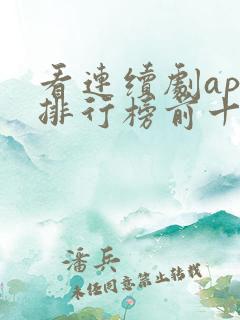 看連續劇ap
排行榜前十
潘兵
未经同意禁止转载